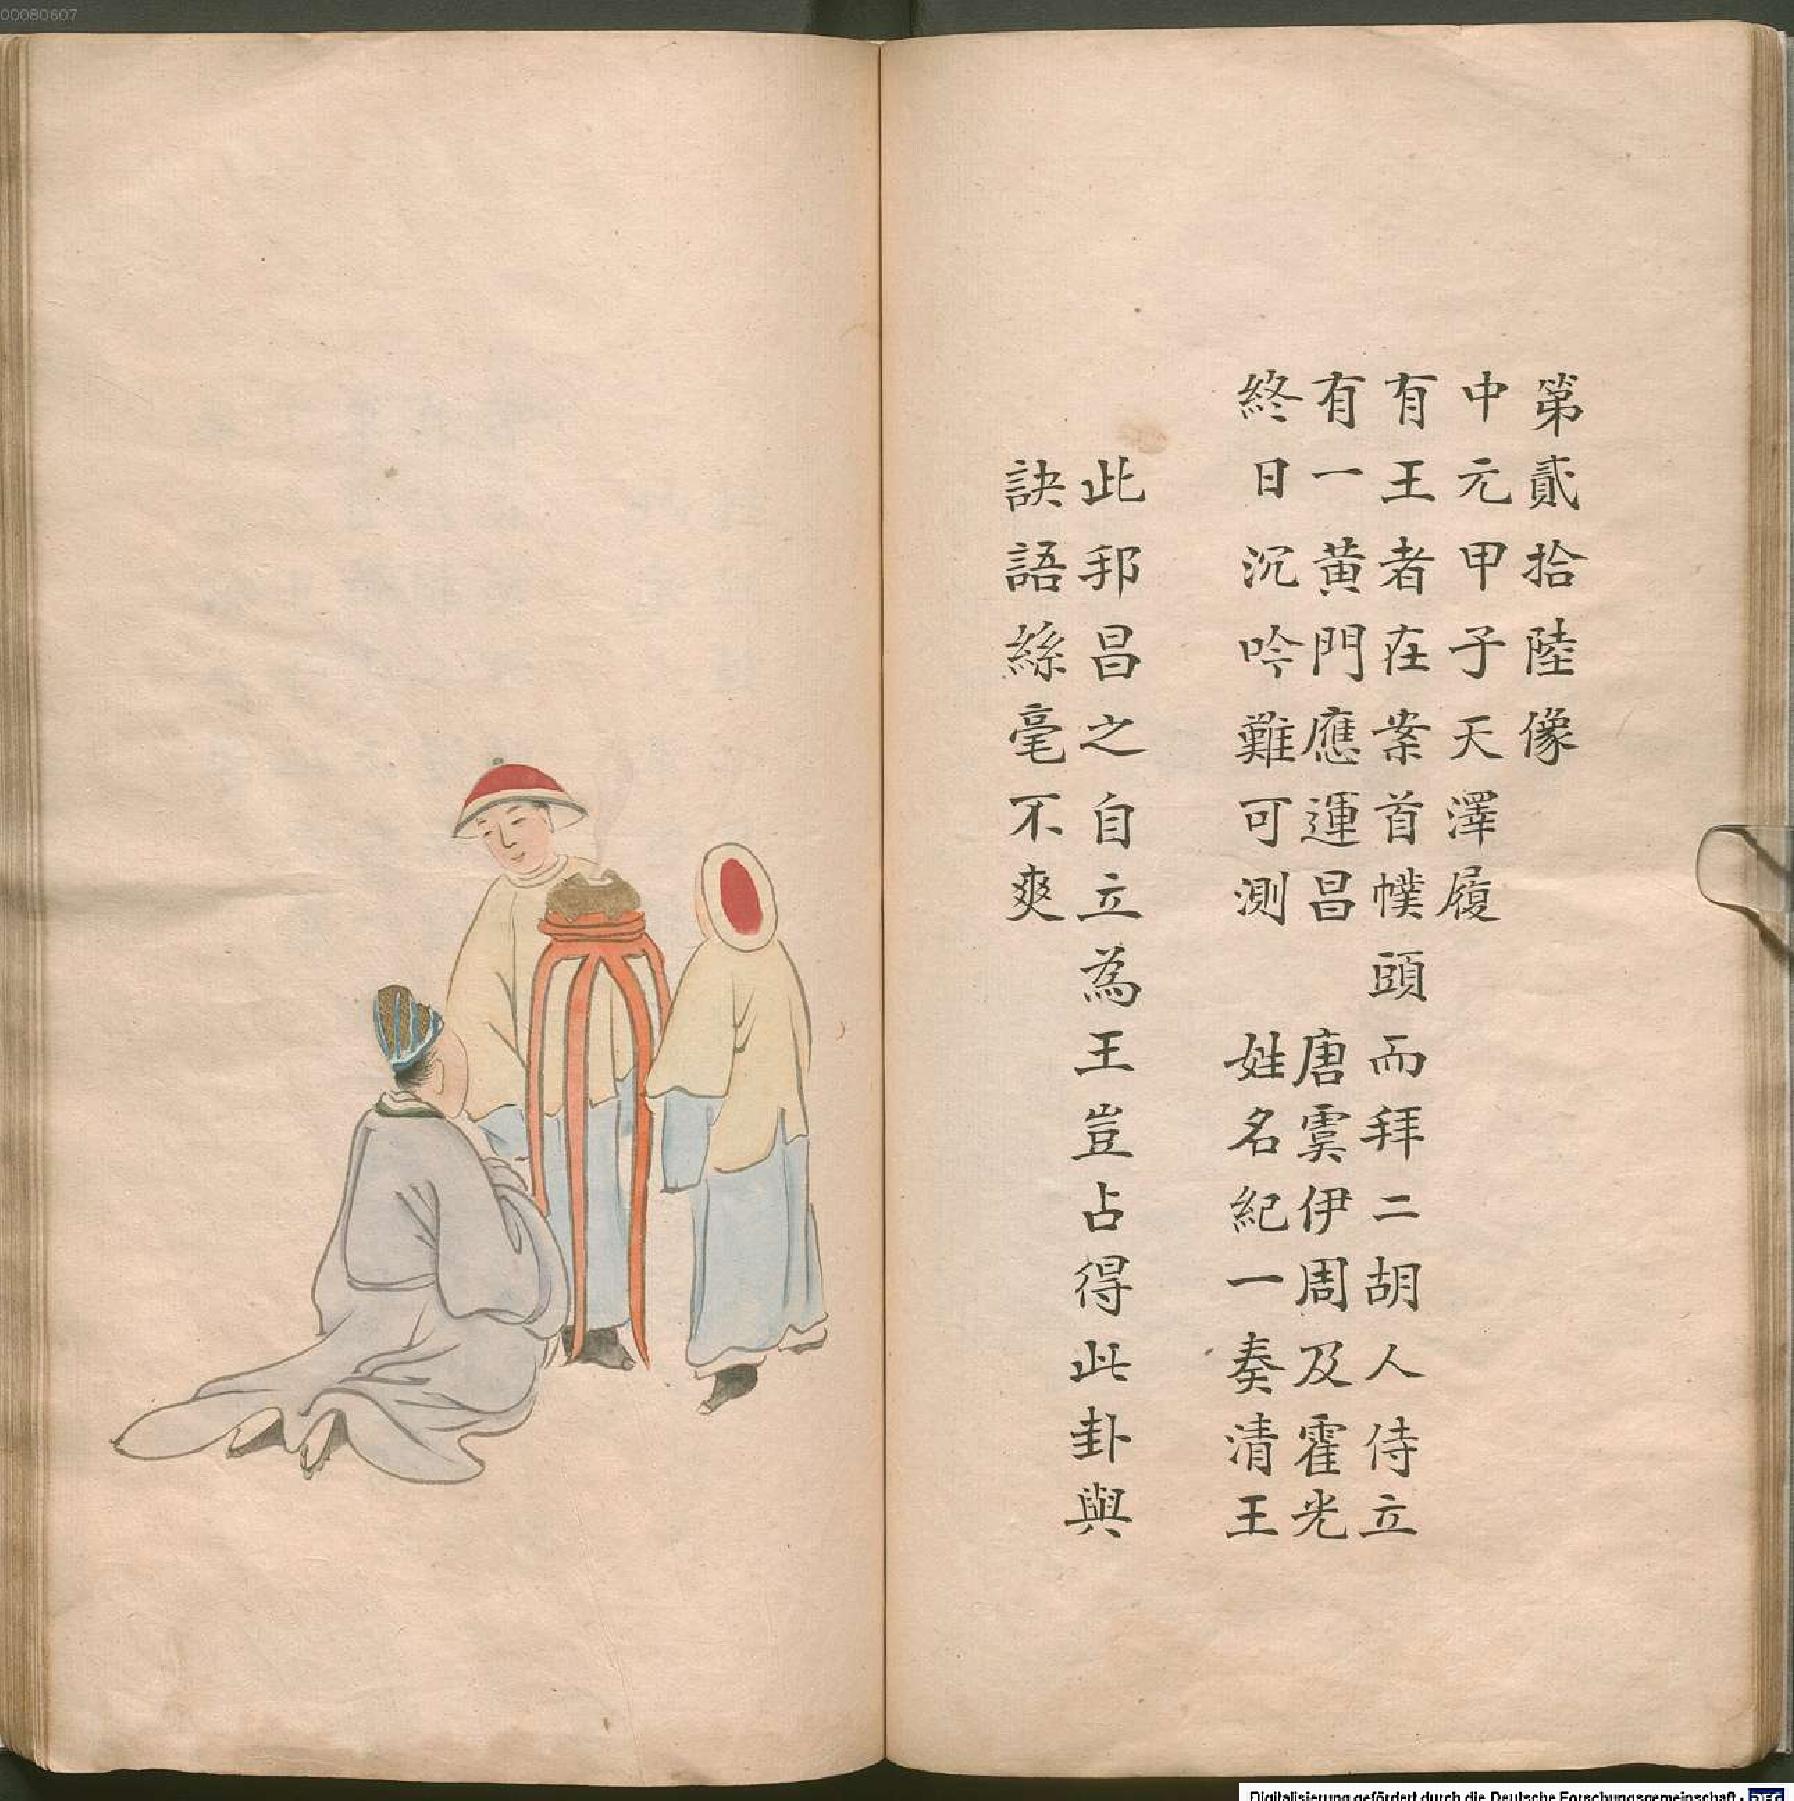 00080607
第貳拾陸像
中元甲子天澤履
有王者在案首幞頭而拜二胡人侍立
有一黃門應運昌 唐虞伊周及霍光
終日沉吟難可測 姓名紀一奏清王
此邦昌之自立為王豈占得此卦與
訣語絲毫不爽
Digitalisierung gefördert durch die Deutsche Forschungsgemeinschaft - DFG